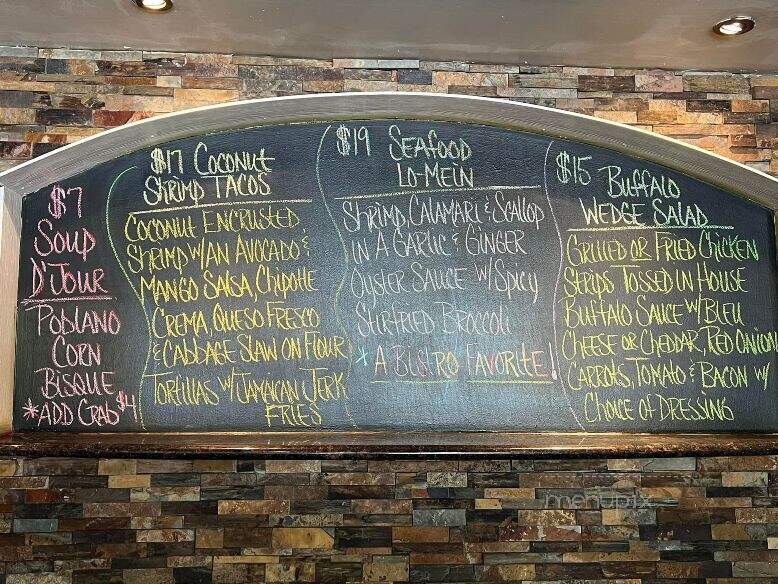 $7
Soup
D'Jour
Poblano
Corn
Bisque
*Add Crab $4
$17 Coconut
Shrimp Tacos
Coconut Encrusted
Shrimp w/an Avocado &
Mango Salsa, Chipotle
Crema, Queso Fresco
& Cabbage Slaw on Flour
Tortillas w/Jamaican Jerk
Fries
$19 Seafood
Lo-Mein
Shrimp, Calamari & Scallop
in a Garlic & Ginger
Oyster Sauce w/Spicy
Stirfried Broccoli
* A Bistro Favorite!
$15 Buffalo
Wedge Salad
Grilled or Fried Chicken
Strips Tossed in House
Buffalo Sauce w/Bleu
Cheese or Cheddar, Red Onion
Carrots, Tomato & Bacon w/
Choice of Dressing
menupix